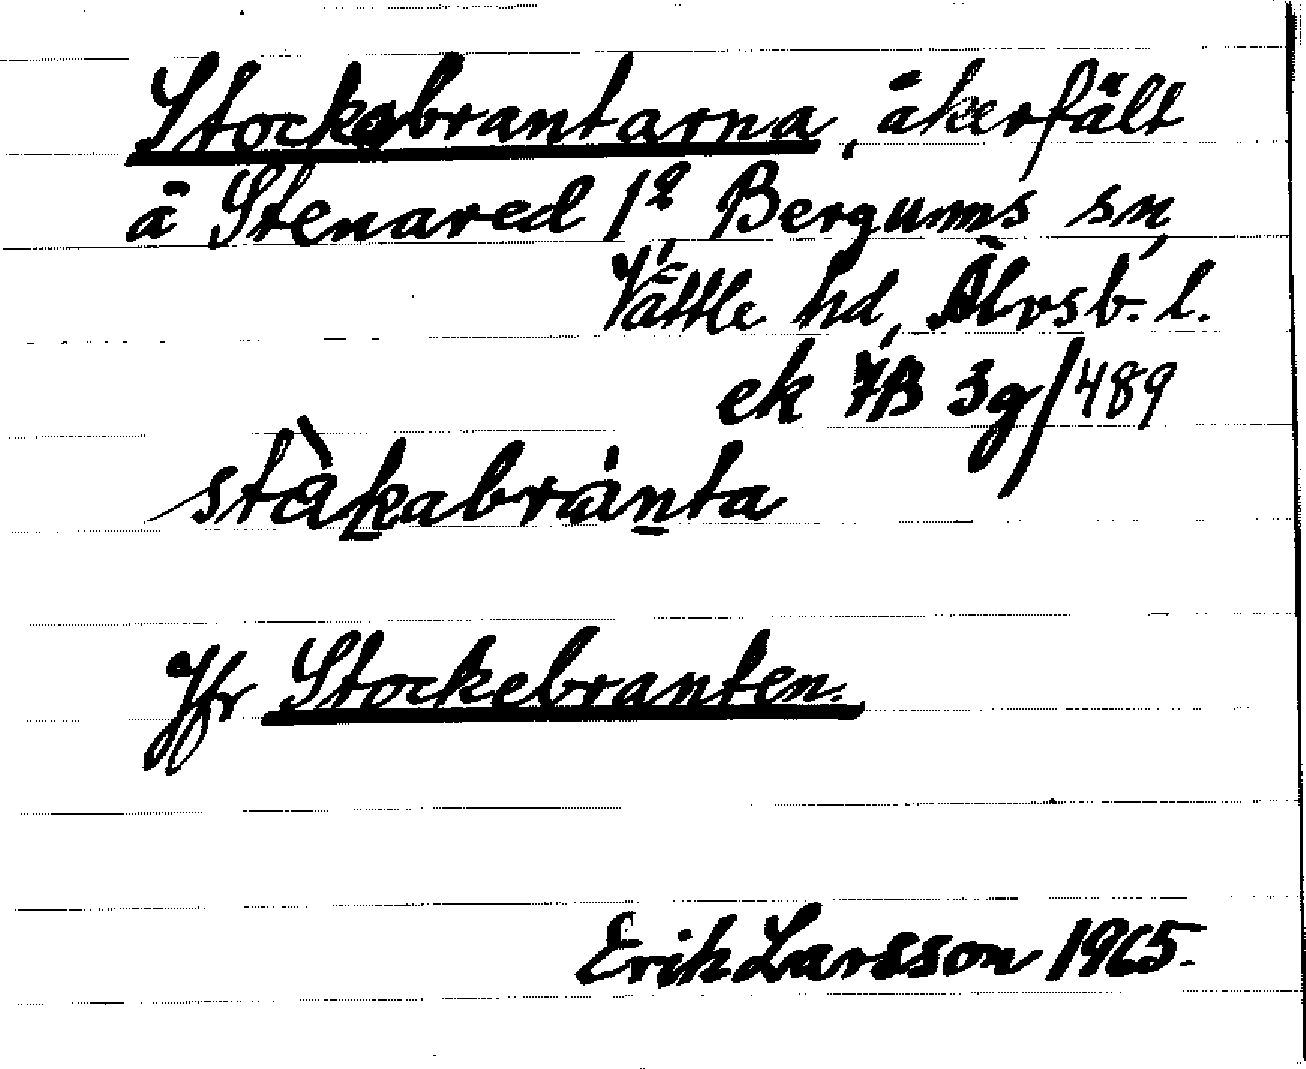 Stockabrantarna, åkerfält
å Stenared 1², Bergums sn,
Vättle hd, Älvsb. l.
ek 7B 3g/489
ståkabranta
Jfr Stockebranten.
Erik Larsson 1965.